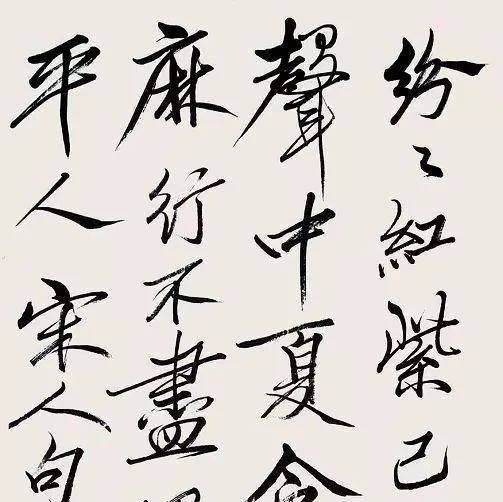 纷〻红紫已
聲中夏令
麻行不盡
平人宋人句